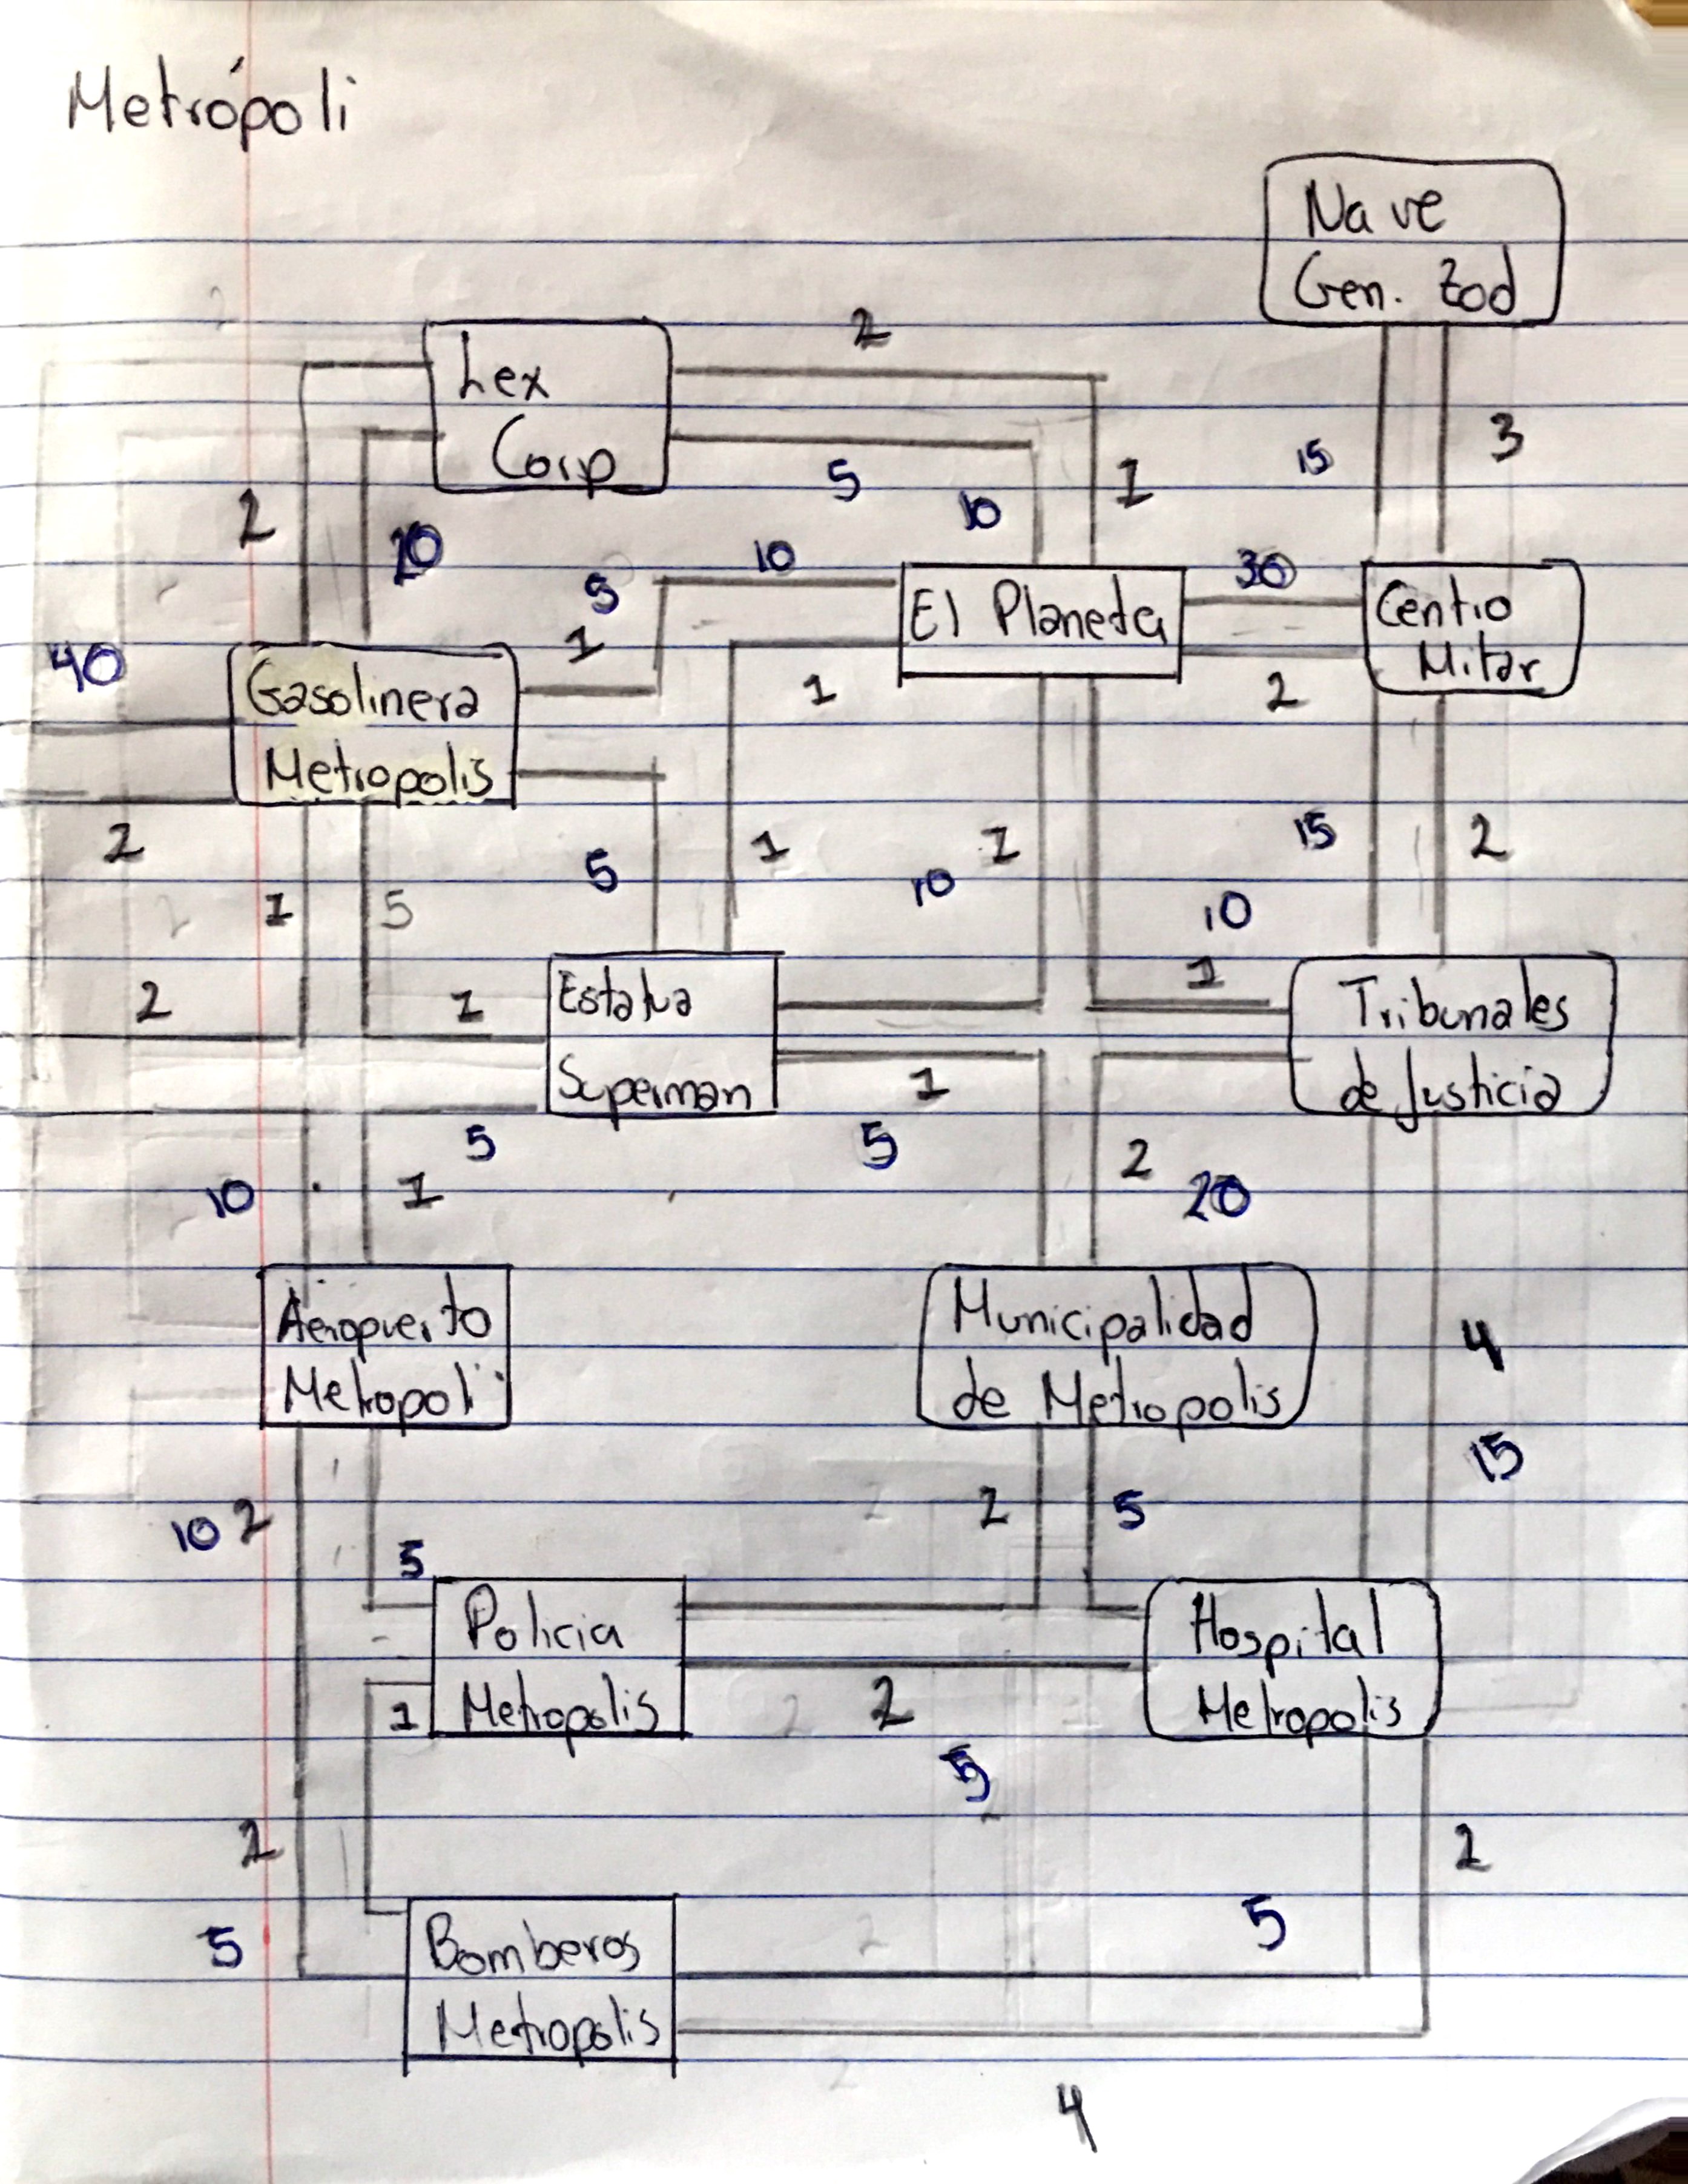 Metrópoli
Nave
Gen. Zod
2
Lex
Corp
3
15
5
1
2
10
10
10
30
5
El Planeta
Centro
Mitar
1
40
Gasolinera
1
2
Metropolis
2
5
1
1
15
2
10
1
5
10
2
1
1
Estatua
Tribunales
Superman
1
de Justicia
5
5
2
10
1
20
Aeropuerto
Metropoli
Municipalidad
de Metropolis
4
15
10
2
2
5
5
Policia
Metropolis
Hospital
Metropolis
1
2
5
2
2
5
5
Bomberos
Metropolis
4